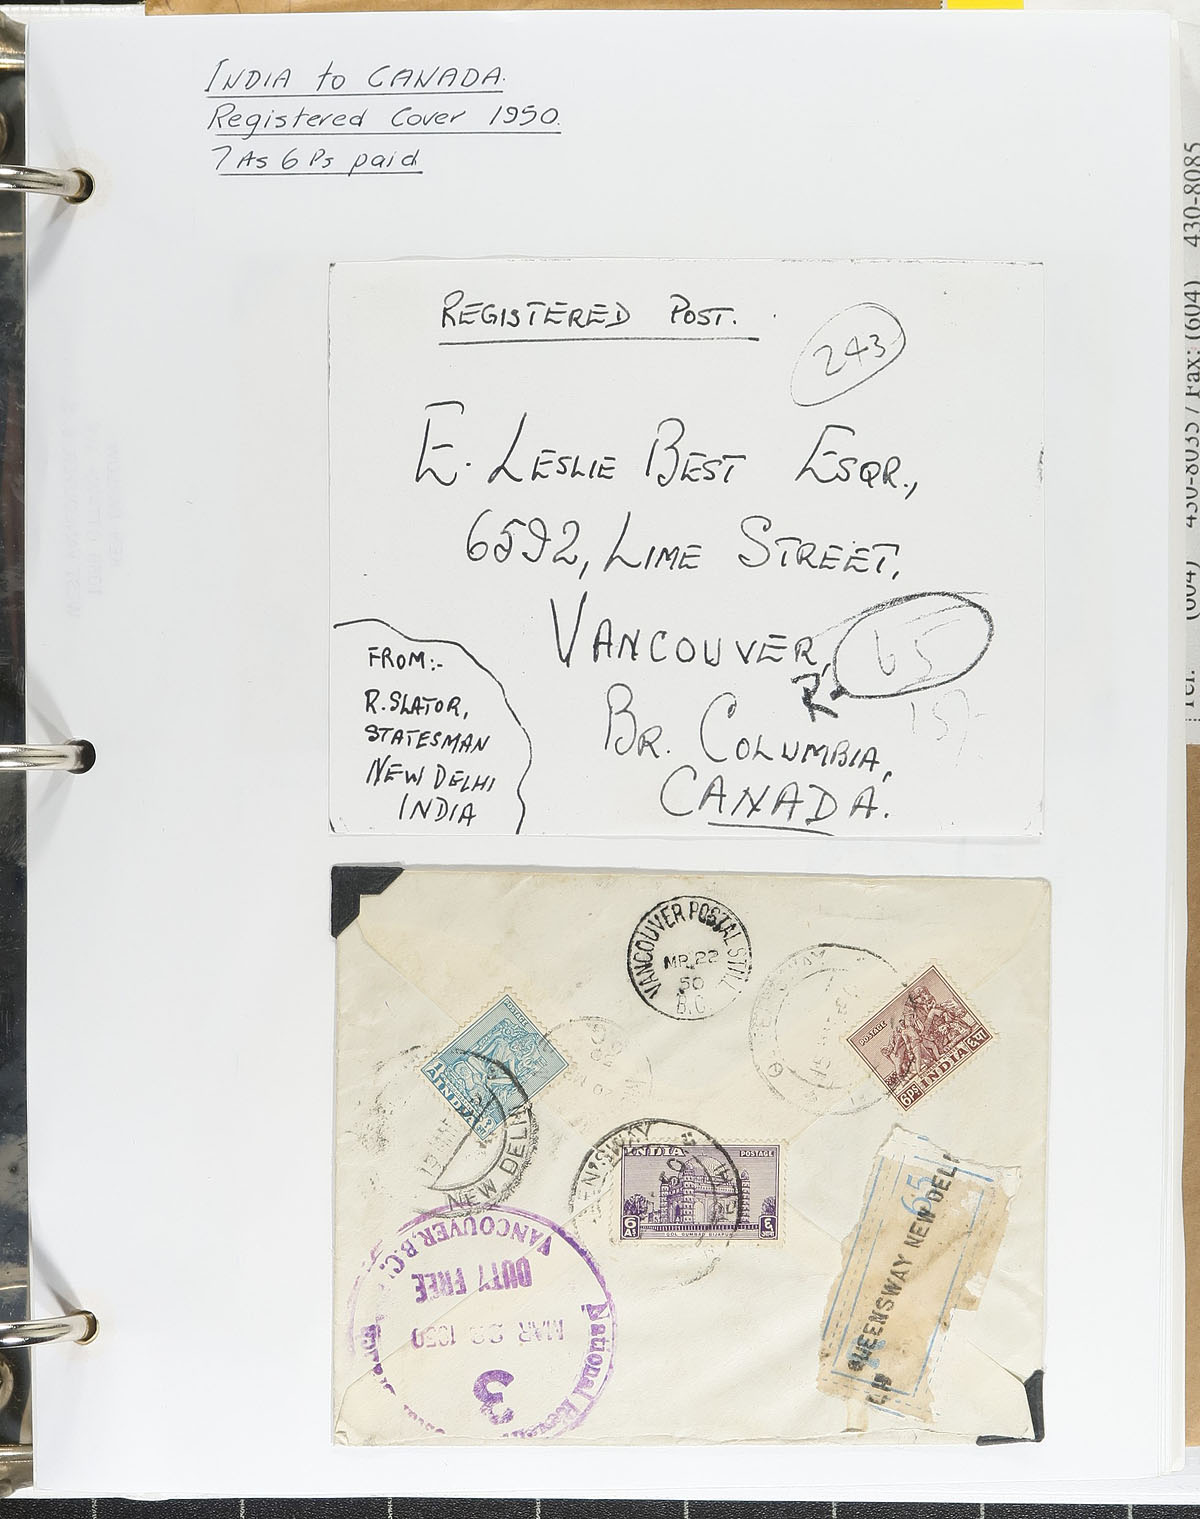 INDIA to CANADA.
Registered Cover 1950.
7 As 6 Ps paid
430-8085
(604)
430-8035 / Fax: (604)
REGISTERED POST.
243
E. LESLIE BEST ESQR.,
6592, LIME STREET,
VANCOUVER,
65
R
BR. COLUMBIA,
CANADA.
FROM:-
R. SLATOR,
STATESMAN
NEW DELHI
INDIA
VANCOUVER POSTAL STN.
MR 22
50
B.C.
POSTAGE
INDIA
NEW DELHI
POSTAGE
6PS INDIA
INDIA POSTAGE
6 As
GOL GUMBAD BIJAPUR
VANCOUVER, B.C.
DUTY FREE
MAR 22 1950
3
National
65
QUEENSWAY NEW DELHI